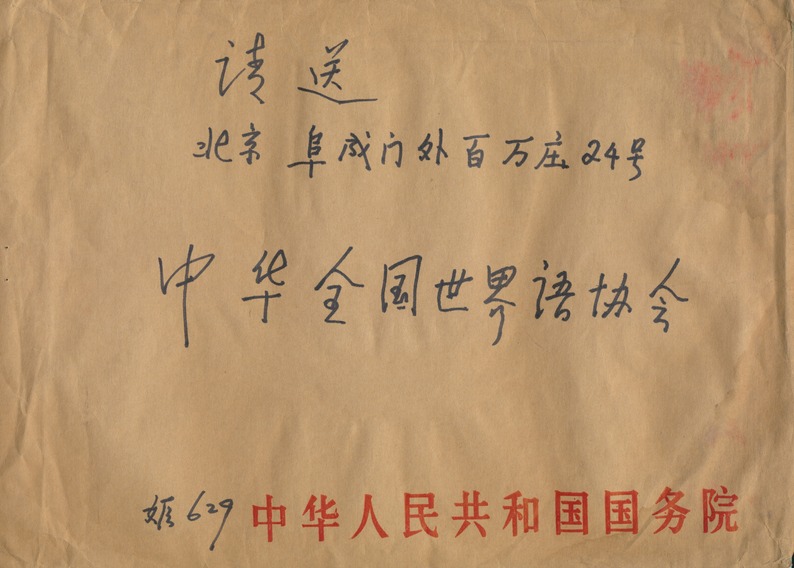 请送
北京 阜成门外百万庄24号
中华全国世界语协会
629 中华人民共和国国务院